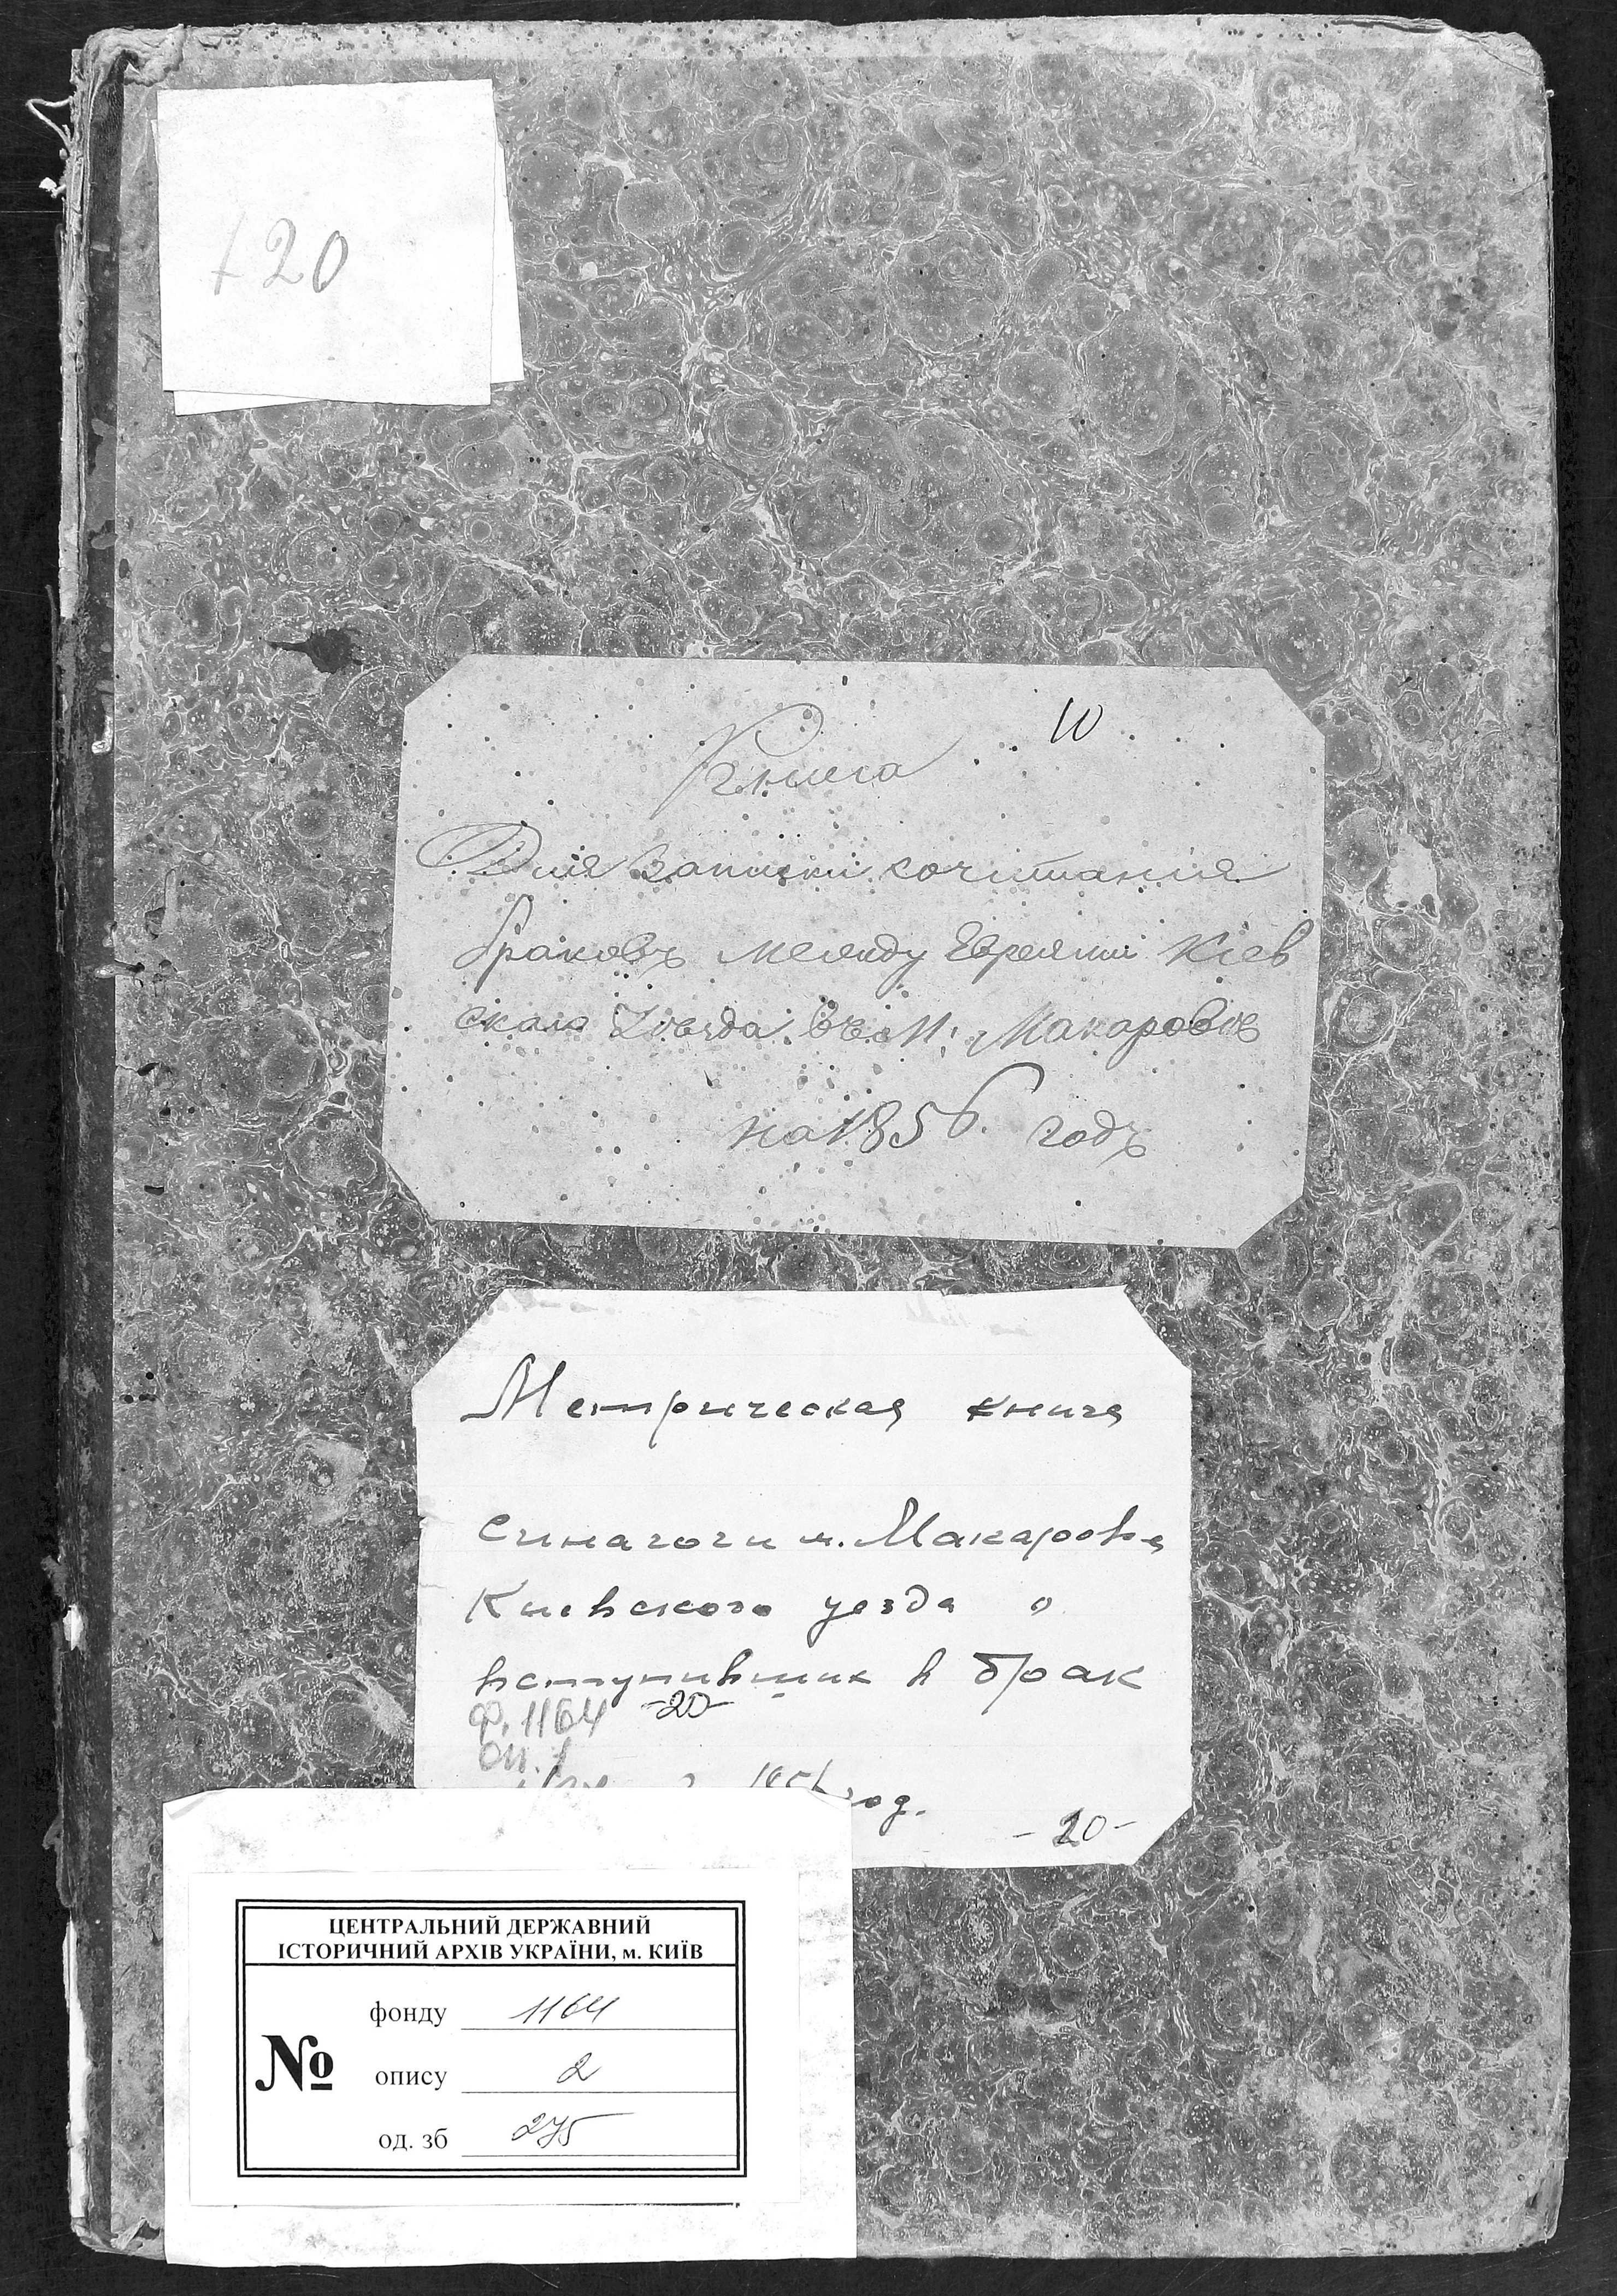 120
10
Книга
Для записки сочитания
браковъ между Евреями Кіев
скаго Уѣзда въ М: Макаровѣ
на 1856 годъ
Метрическая книга
синагоги м. Макарова
Киевского уезда о
вступивших в брак
ф. 1164 -20-
оп. 1
год.
-20-
ЦЕНТРАЛЬНИЙ ДЕРЖАВНИЙ
ІСТОРИЧНИЙ АРХІВ УКРАЇНИ, м. КИЇВ
№
фонду 1164
опису 2
од. зб 275